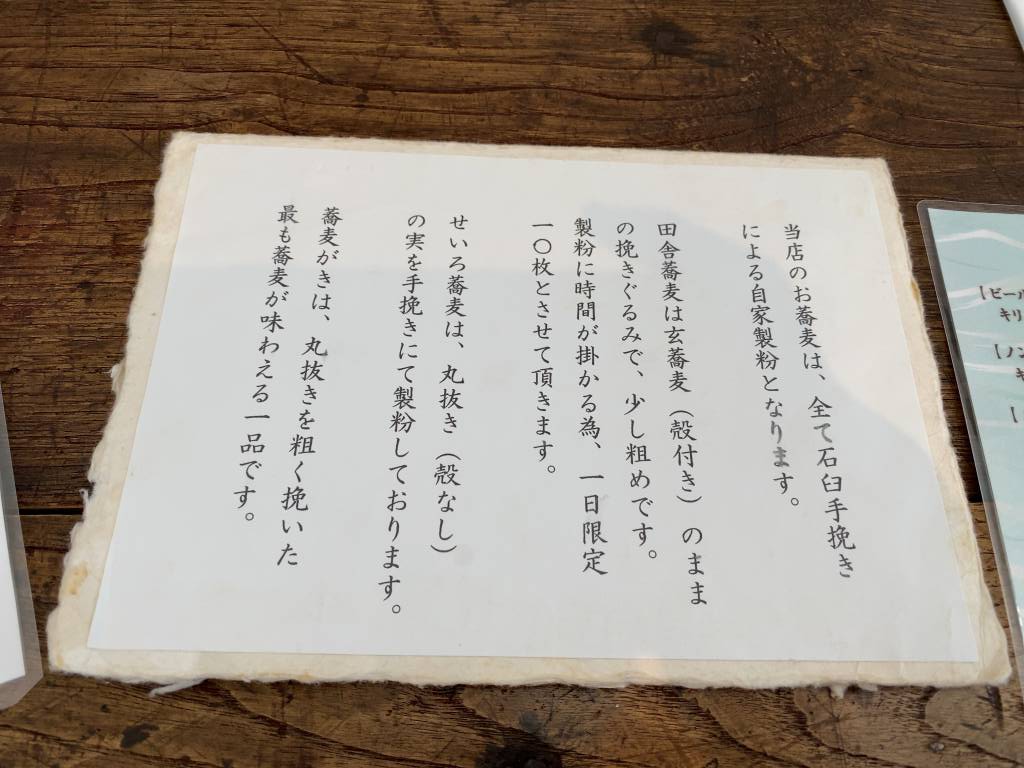 当店のお蕎麦は、全て石臼手挽き
による自家製粉となります。
田舎蕎麦は玄蕎麦（殻付き）のまま
の挽きぐるみで、少し粗めです。
製粉に時間が掛かる為、一日限定
一〇枚とさせて頂きます。
せいろ蕎麦は、丸抜き（殻なし）
の実を手挽きにて製粉しております。
蕎麦がきは、丸抜きを粗く挽いた
最も蕎麦が味わえる一品です。
【ビール
キリ
【ノン
キ
【